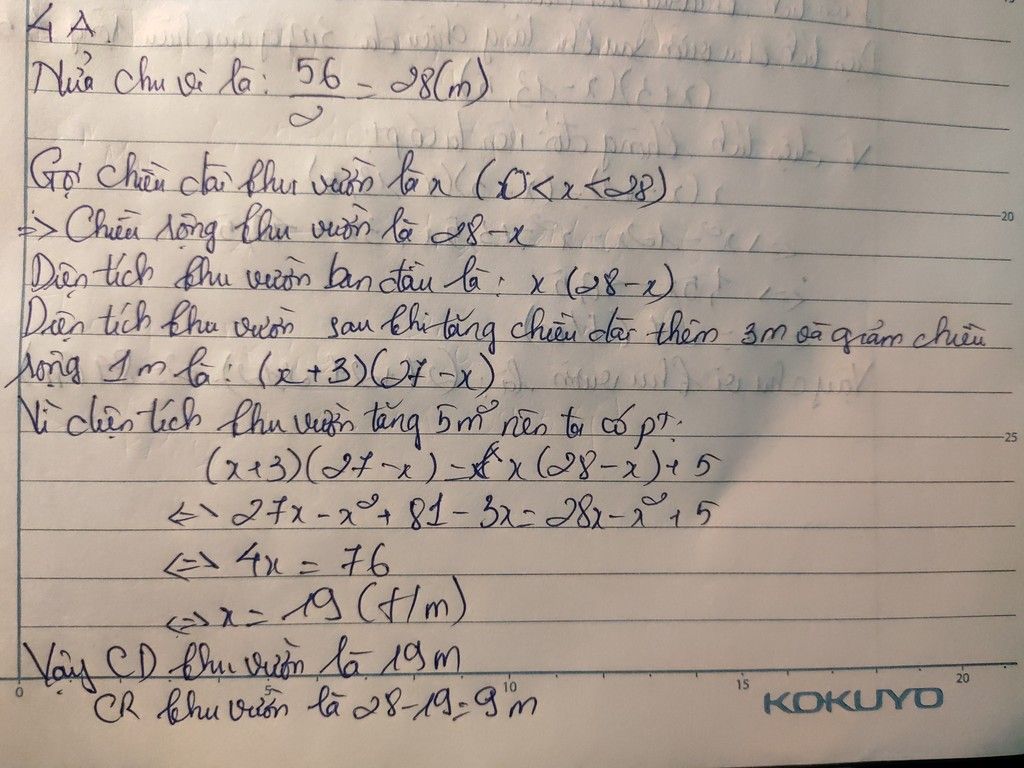 4A
Nửa chu vi là: 56/2 = 28(m)
Gọi chiều dài khu vườn là x (0 < x < 28)
=> Chiều rộng khu vườn là 28-x
Diện tích khu vườn ban đầu là: x(28-x)
Diện tích khu vườn sau khi tăng chiều dài thêm 3m và giảm chiều
rộng 1m là: (x+3)(27-x)
Vì diện tích khu vườn tăng 5m² nên ta có pt:
(x+3)(27-x) = x(28-x)+5
<=> 27x-x²+81-3x=28x-x²+5
<=> 4x = 76
<=> x = 19 (t/m)
Vậy CD khu vườn là 19m
CR khu vườn là 28-19=9m
20
25
0 5 10 15 20
KOKUYO